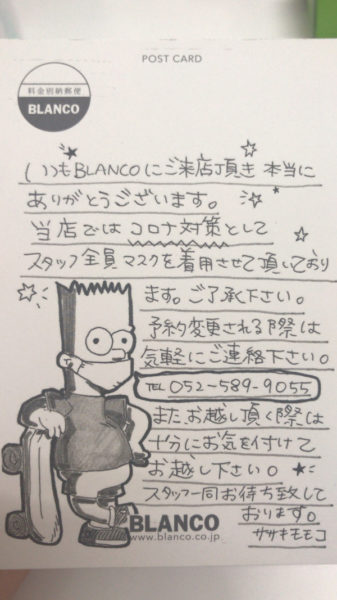 POST CARD
料金別納郵便
BLANCO
いつもBLANCOにご来店頂き 本当に
ありがとうございます。
当店では コロナ対策として
スタッフ全員マスクを着用させて頂いており
ます。ご了承下さい。
予約変更される際は
気軽にご連絡下さい。
TEL 052-589-9055
また、お越し頂く際は
十分にお気を付けて
お越し下さい。
スタッフ一同お待ち致して
おります。
ササキモモコ
BLANCO
www.blanco.co.jp